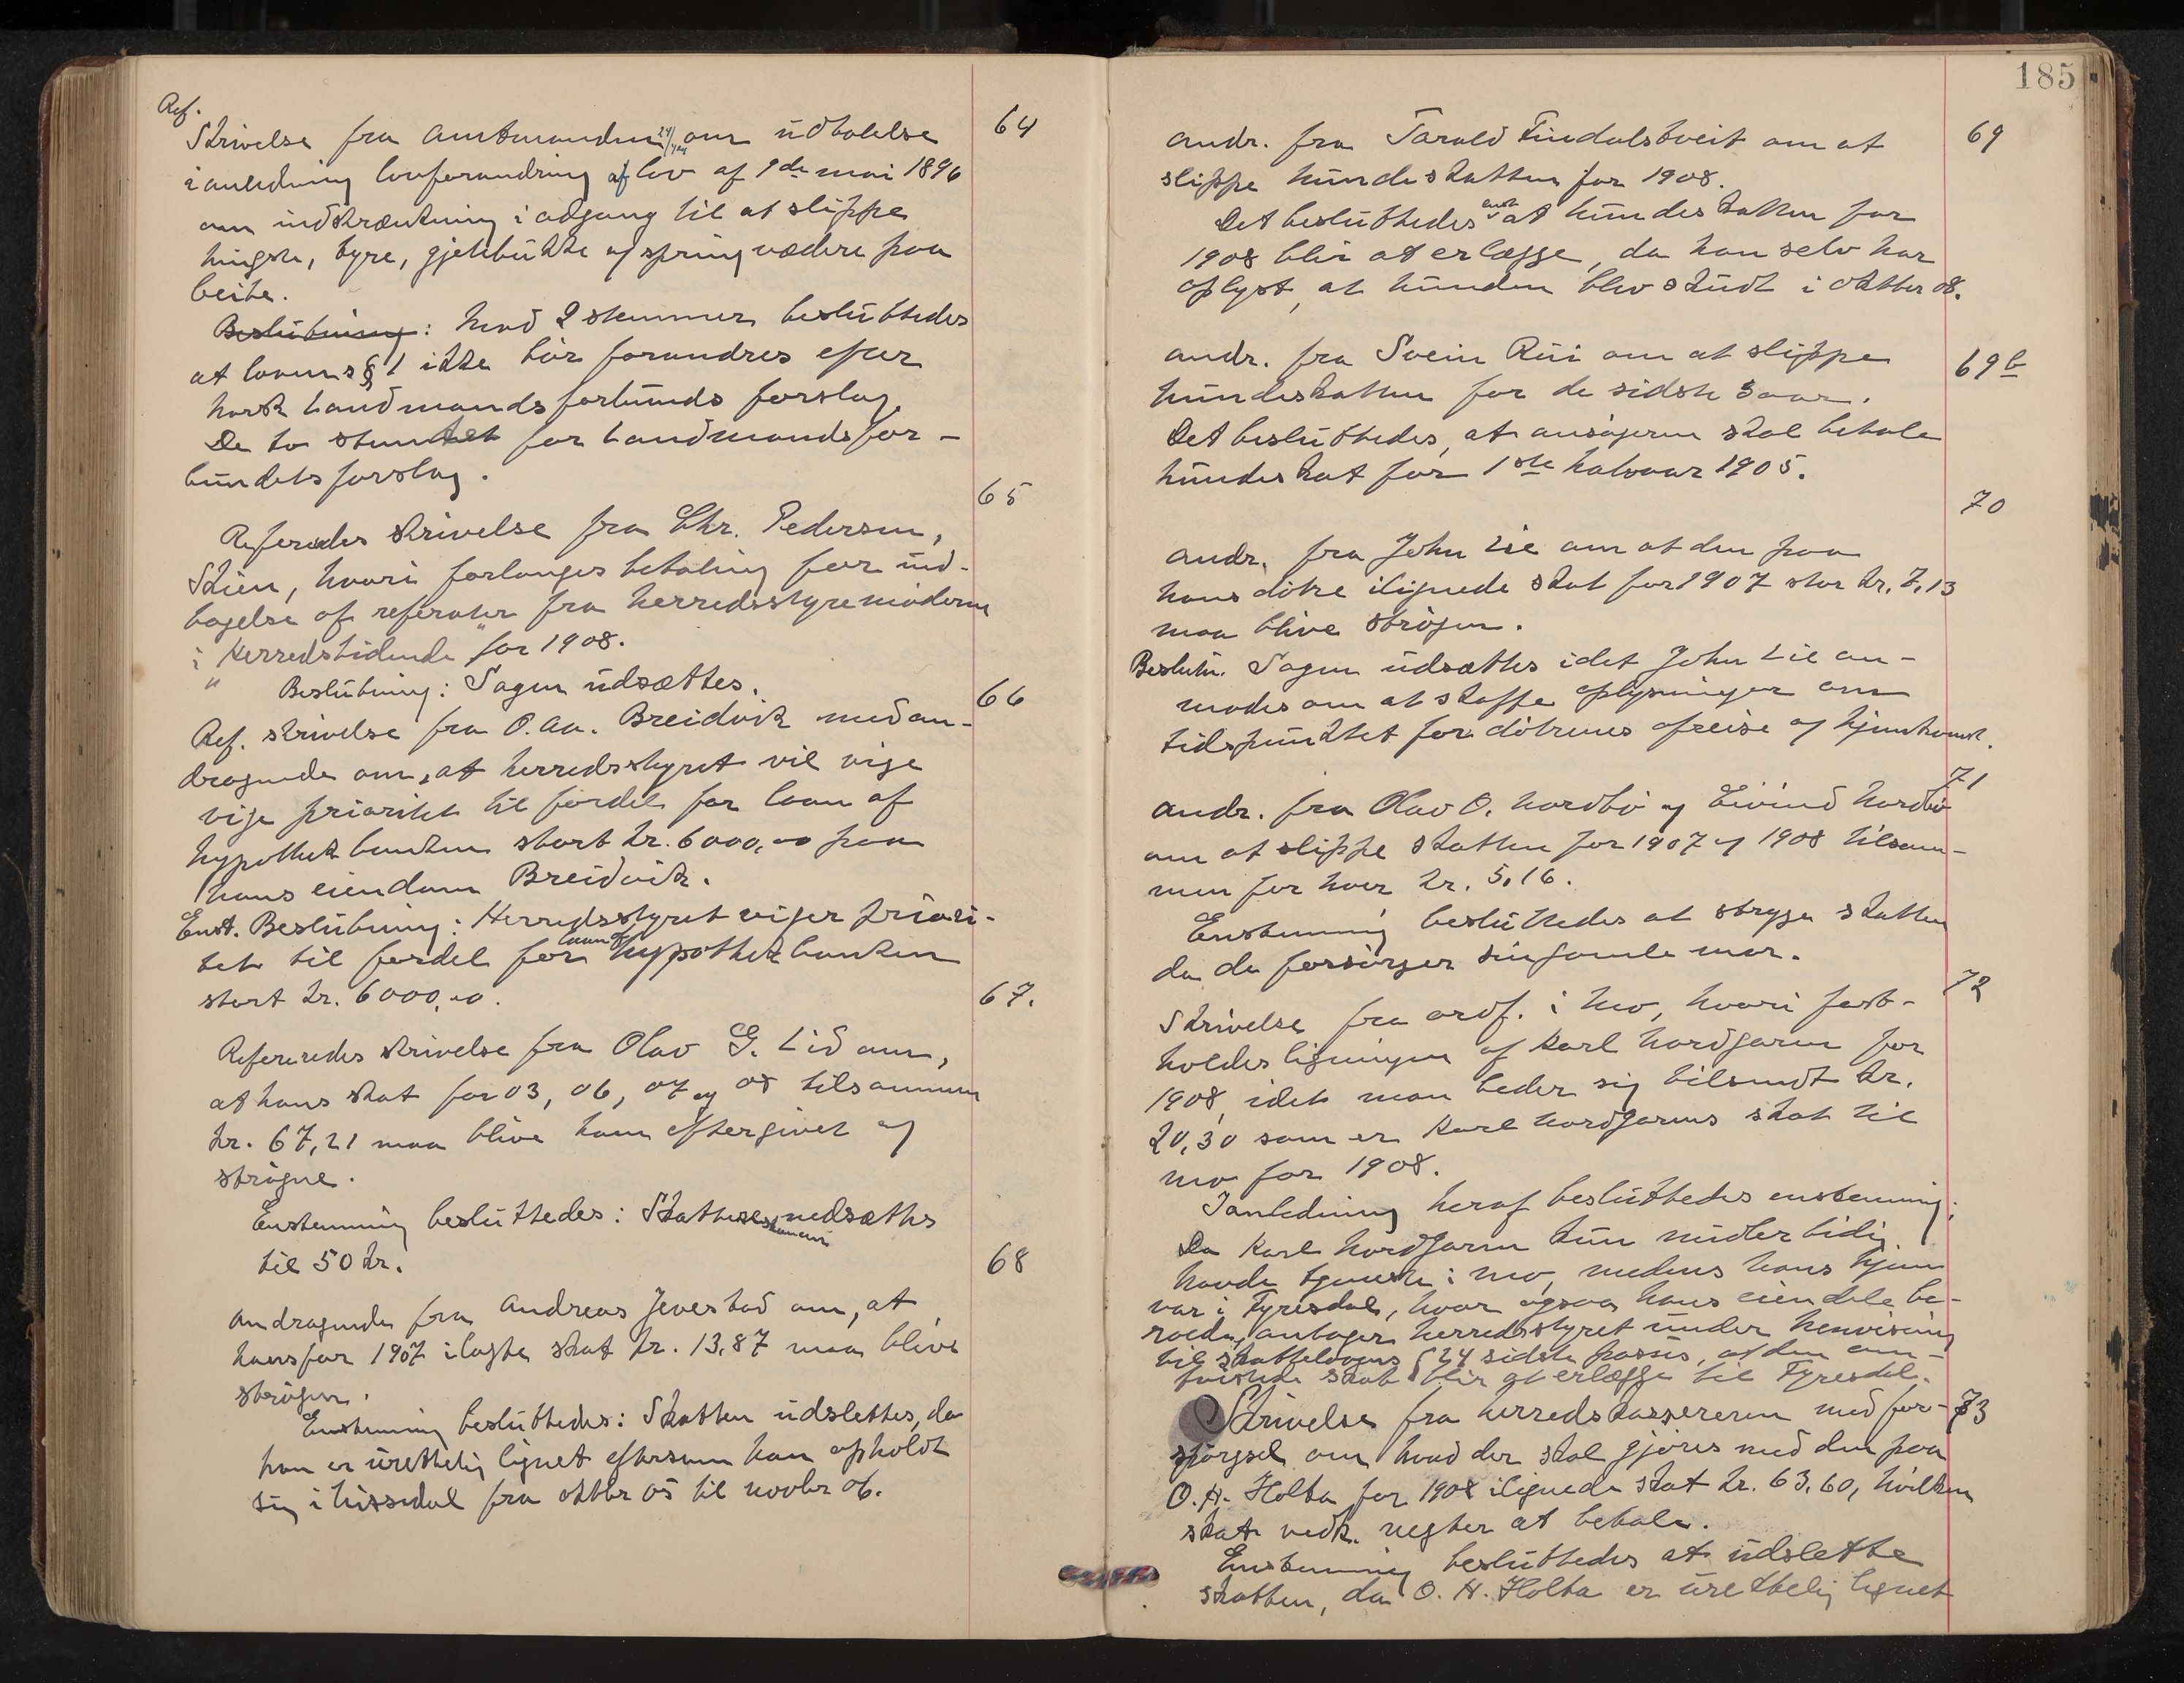 Ref.
Skrivelse fra amtmanden 24/ om udtalelse
64
i anledning lovforandring af lov af 9de mai 1896
om indskrænkning i adgang til at slippe
hingste, tyre, gjetebukke og springvædere paa
beite.
Beslutning: Mod 2 stemmer besluttedes
at lovens § 1 ikke bør forandres efter
norsk Landmandsforbunds forslag.
De to stemte for Landmandsfor-
bundets forslag.
65
Refereredes skrivelse fra Chr. Pedersen,
Skien, hvori forlanges betaling for ind-
tagelse af referater fra herredsstyremøderne
i "Herredstidende" for 1908.
Beslutning: Sagen udsættes.
66
Ref. skrivelse fra O. Aa. Breidvik med an-
dragende om, at herredsstyret vil vige
vige prioritet til fordel for laan af
hypothekbanken stort kr. 6000,00 paa
hans eiendom Breidvik.
Enst. Beslutning: Herredsstyret viger priori-
tet til fordel for laan af hypothekbanken
stort kr. 6000,00.
67.
Refereredes skrivelse fra Olav G. Lid om,
at hans skat for 03, 06, 07 og 08 tilsammen
kr. 67,21 maa blive ham eftergivet og
strøgne.
Enstemmig besluttedes: Skatterne nedsættes
til 50 kr.
68
Andragende fra Andreas Jevestad om, at
hans for 1907 ilagte skat kr. 13,87 maa blive
strøgen.
Enstemmig besluttedes: Skatten udslettes, da
han er urettelig lignet eftersom han opholdt
sig i Nissedal fra oktbr 05 til novbr 06.
185
Andr. fra Tarald Findalstveit om at
69
slippe hundeskatten for 1908.
Det besluttedes enst at hundeskatten for
1908 blir at erlægge, da han selv har
oplyst, at hunden blev skudt i oktber 08.
Andr. fra Svein Rui om at slippe
69b
hundeskatten for de sidste 3 aar.
Det besluttedes, at ansøgeren skal betale
hundeskat for 1ste halvaar 1905.
70
Andr. fra John Lie om at den paa
hans døtre ilignede skat for 1907 stor kr. 7,13
maa blive strøgen.
Beslutn. Sagen udsættes idet John Lie an-
modes om at skaffe oplysninger om
tidspunktet for døtrenes afreise og hjemkomst.
71
Andr. fra Olav O. Nordbø og Eivind Nordbø
om at slippe skatten for 1907 og 1908 tilsam-
men for hver kr. 5,16.
Enstemmig besluttedes at stryge skatten
da de forsørger sin gamle mor.
72
Skrivelse fra ordf. i Mo, hvori fast-
holdes ligningen af Karl Nordgarn for
1908, idet man beder sig tilsendt kr.
20,30 som er Karl Nordgarns skat til
Mo for 1908.
I anledning heraf besluttedes enstemmig:
Da Karl Nordgarn kun midlertidig
havde tjeneste i Mo, medens hans hjem
var i Fyresdal, hvor ogsaa hans eiendele be-
roede, antager herredsstyret under henvisning
til skattelovens § 24 sidste passus, at den om-
tvistede skat blir at erlægge til Fyresdal.
Skrivelse fra herredskassereren med for-
73
spørgsel om hvad der skal gjøres med den paa
O. H. Holta for 1908 ilignede skat kr. 63,60, hvilken
skat vedk. negter at betale.
Enstemmig besluttedes at udslette
skatten, da O. H. Holta er urettelig lignet